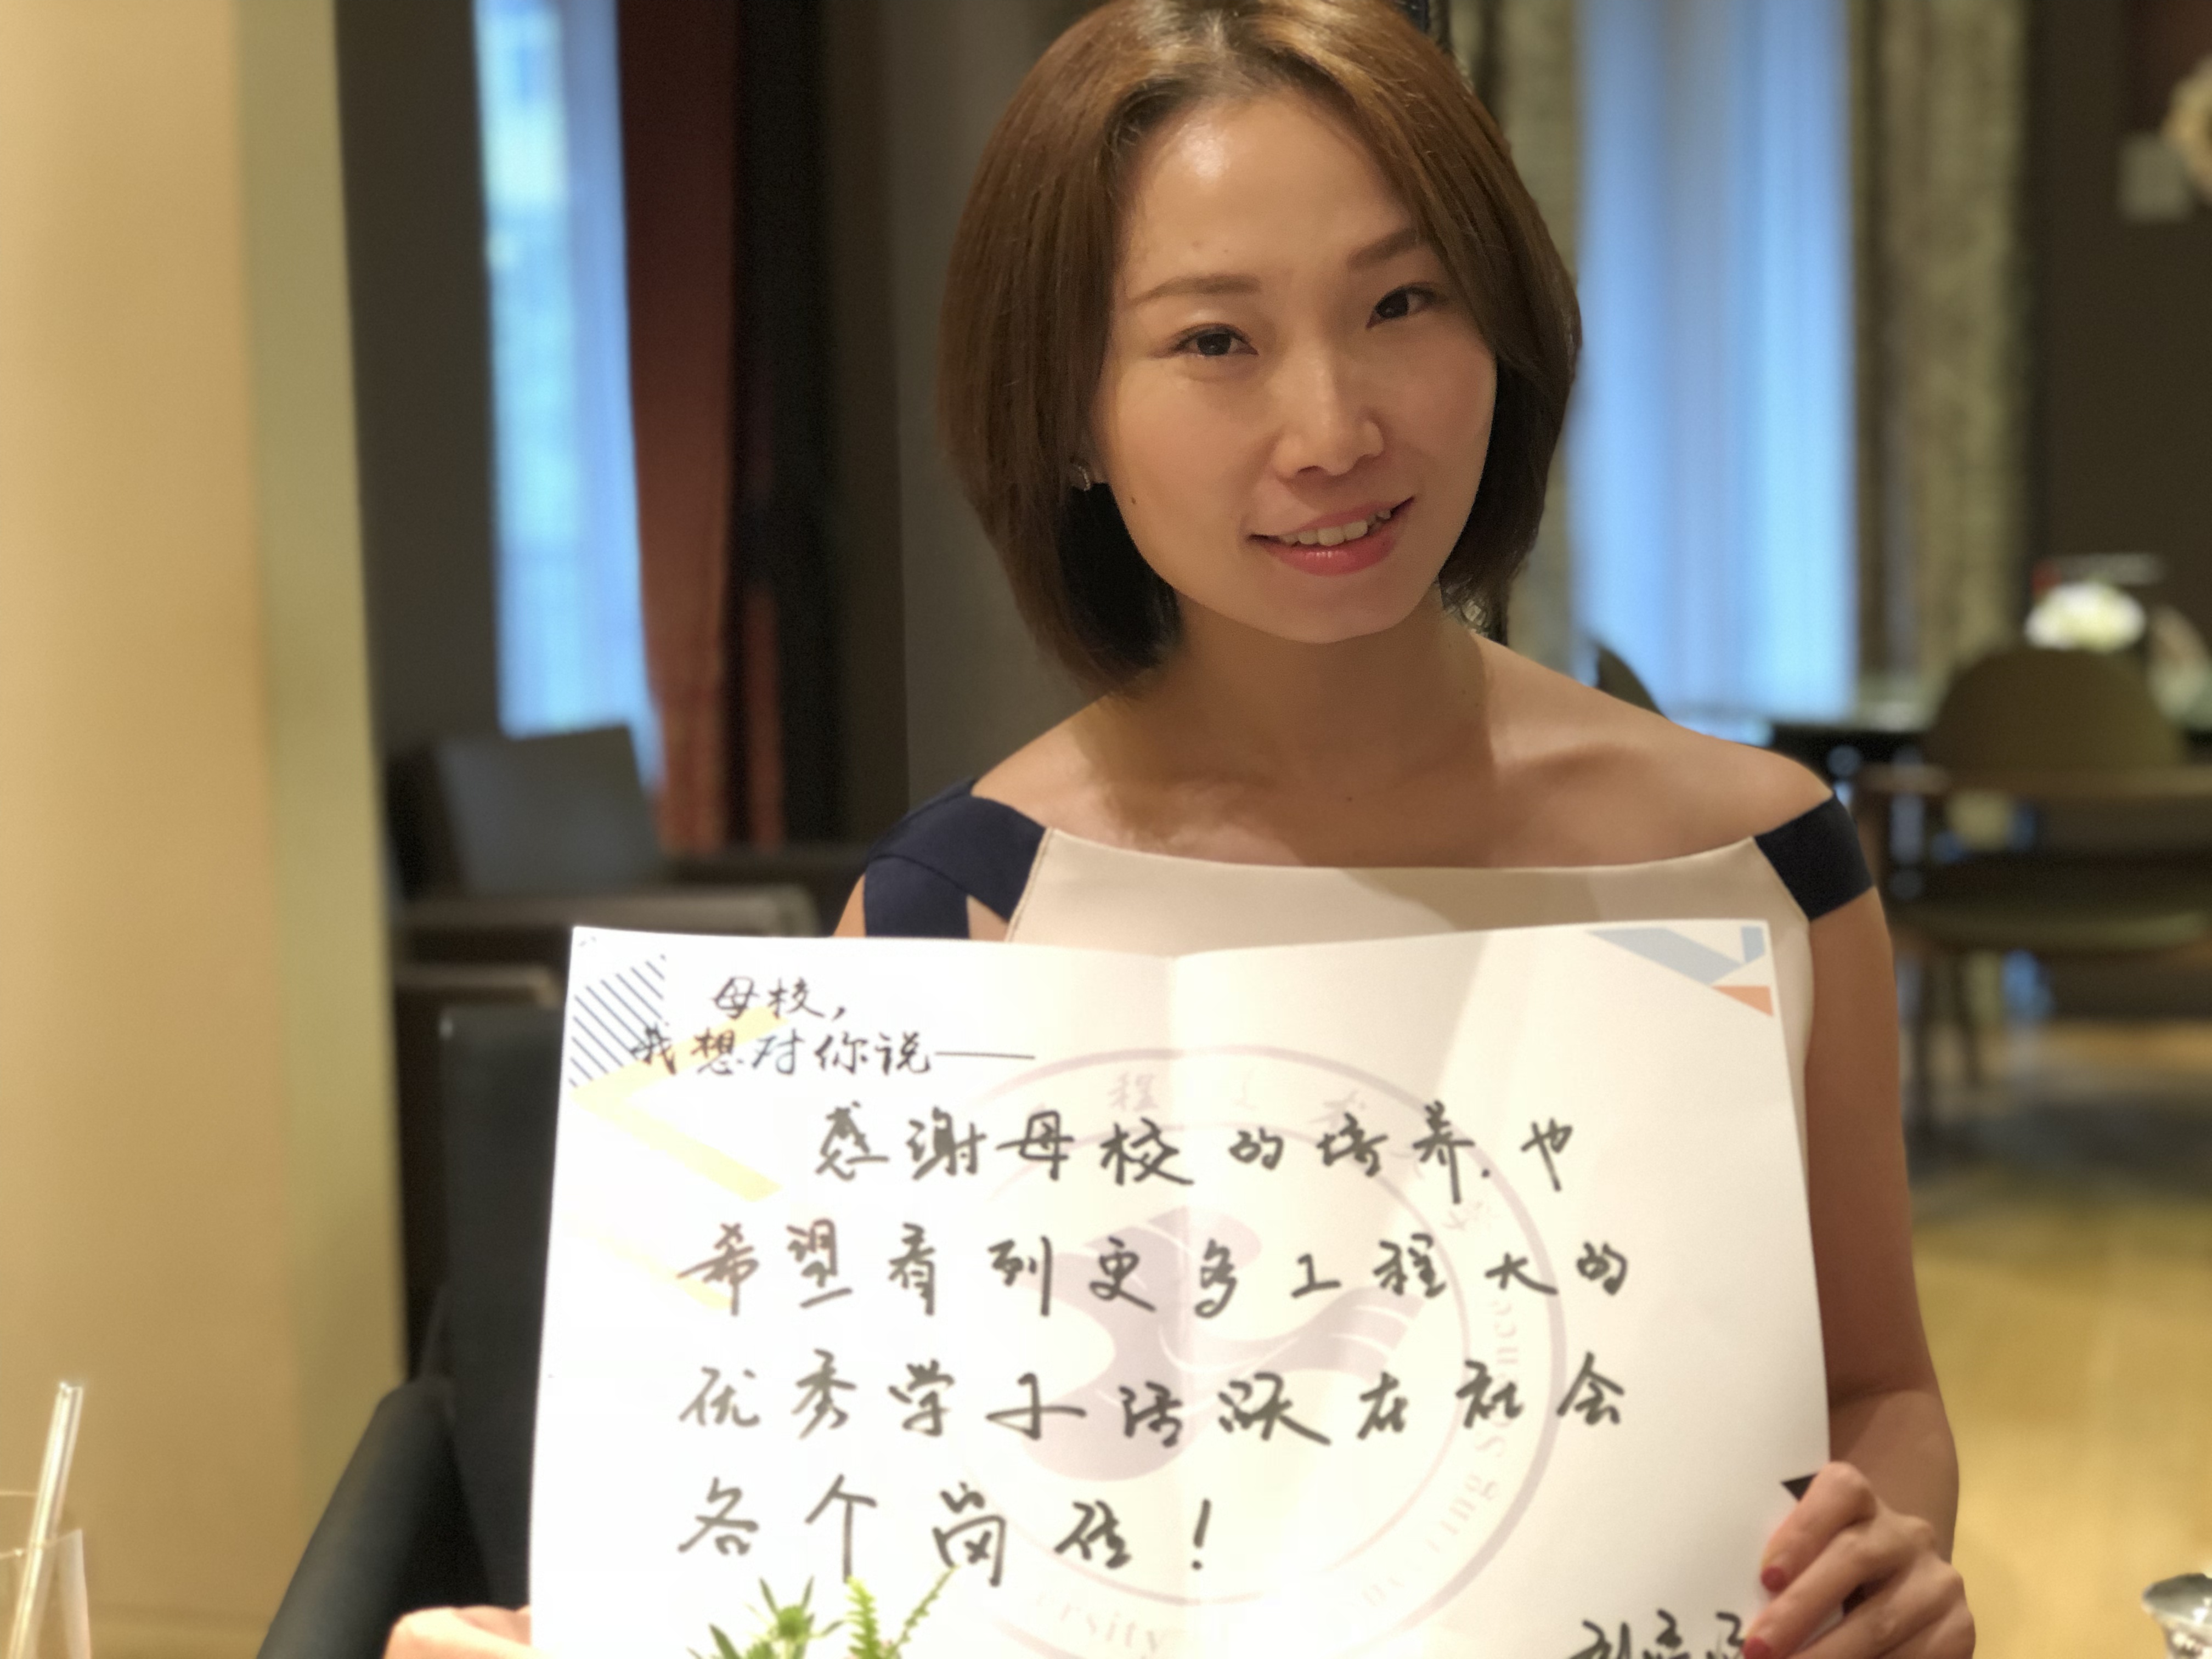 母校，
我想对你说——
感谢母校的培养，也
希望看到更多工程大的
优秀学子活跃在社会
各个岗位！
程
ersity
ing Science